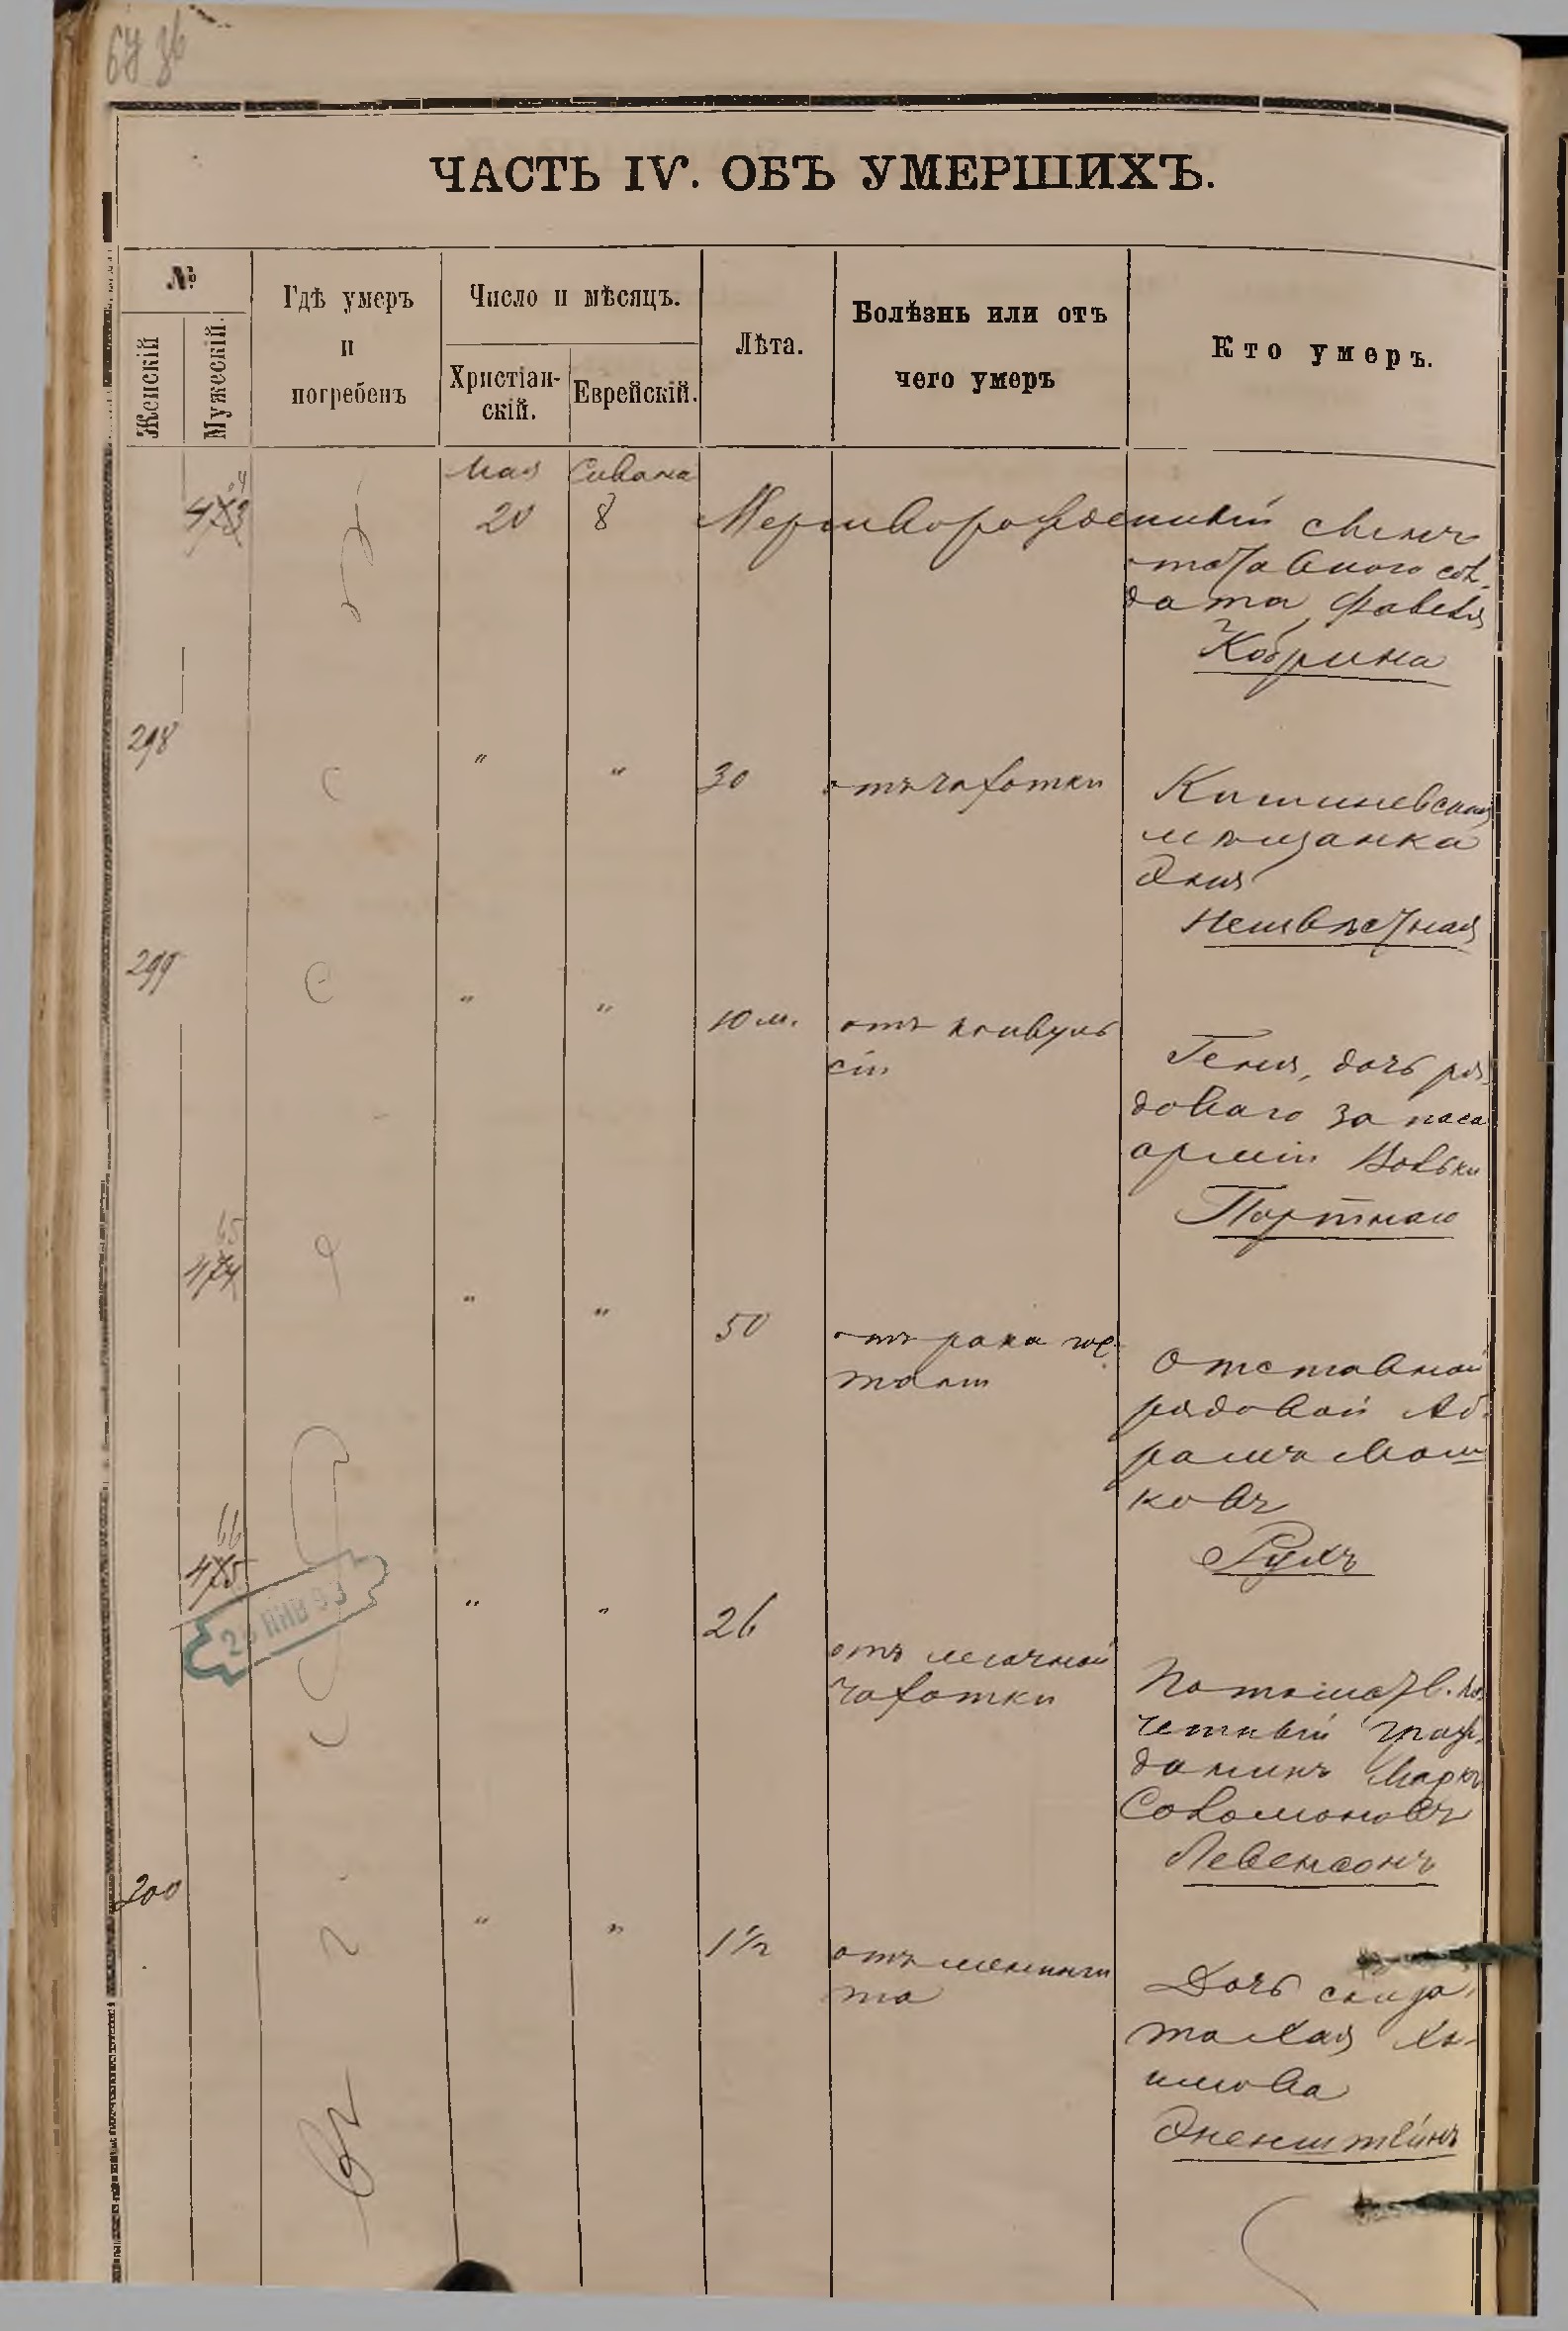 ЧАСТЬ IV. ОБЪ УМЕРШИХЪ.
№
Женскій
Мужескій.
Гдѣ умеръ
и
погребенъ
Число и мѣсяцъ.
Христіан-
скій.
Еврейскій.
Лѣта.
Болѣзнь или отъ
чего умеръ
Кто умеръ.
Мая Сивана
473 20 8 Мертворожденный сынъ
отставного сол-
дата Фавеля
Кобрина
298 " " 30 отъ чахотки Кишиневская
мѣщанка
Эния
Неизвѣстная
299 " " 10 м. отъ конвуль
сіи
Геня, дочь ря
доваго запаса
арміи Вольки
Портнаго
65
474 " " 50 отъ рака же-
Отставной
рядовой Аб-
рамъ Мош
ковъ
Рухъ
66
475 " " 26 отъ легочной
чахотки
Потомств. по
четный граж-
данинъ Маркъ
Соломоновъ
Левенсонъ
ЯНВ 93
300 " " 1½ отъ менинги
та
Дочь солда
та Хая Ха-
имова
Эненштейнъ